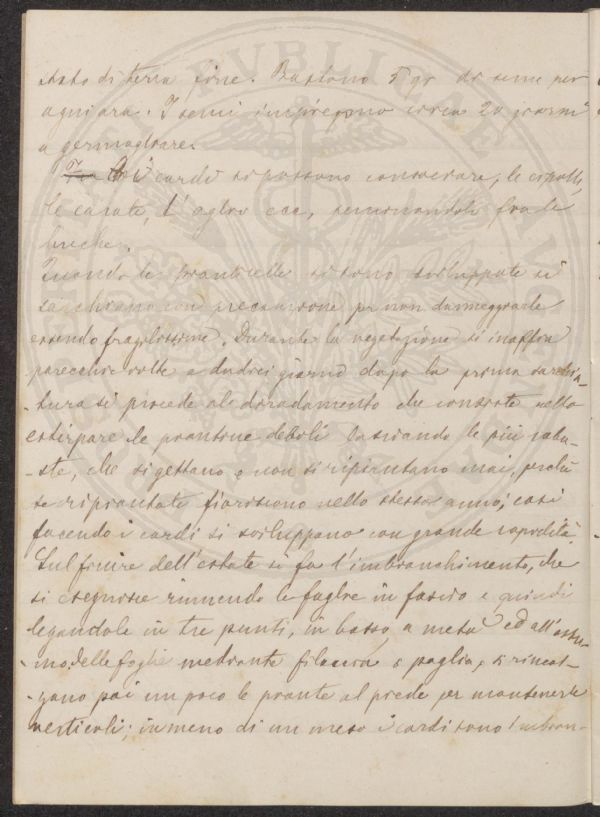 stato di terra fine. Bastono 5 gr di seme per
ogni ara. I semi impiegono circa 20 giorni
a germogliare.
I cardi si possono consociare, le cipolle,
le carote, l'aglio ecc, seminandoli fra le
buche.
Quando le pianticelle si sono sviluppate si
sarchiano con precauzione per non danneggiarle
essendo fragilissime. Durante la vegetazione si inaffia
parecchie volte e dudici giorni dopo la prima sarchia-
tura si procede al diradamento che consiste nello
estirpare le piantine deboli lasciando le più robu-
-ste, che si gettano e non si ripiantano mai, perchè
se ripiantate fioriscono nello stesso anno; così
facendo i cardi si sviluppano con grande rapidità.
Sul finire dell'estate si fa l'imbianchimento, che
si eseguisce riunendo le foglie in fascio e quindi
legandole in tre punti, in basso, a metà ed all'estre-
mo delle foglie mediante filaccia o paglia, si rincal-
zano poi un poco le piante al piede per mantenerle
verticali; in meno di un mese i cardi sono imbian-